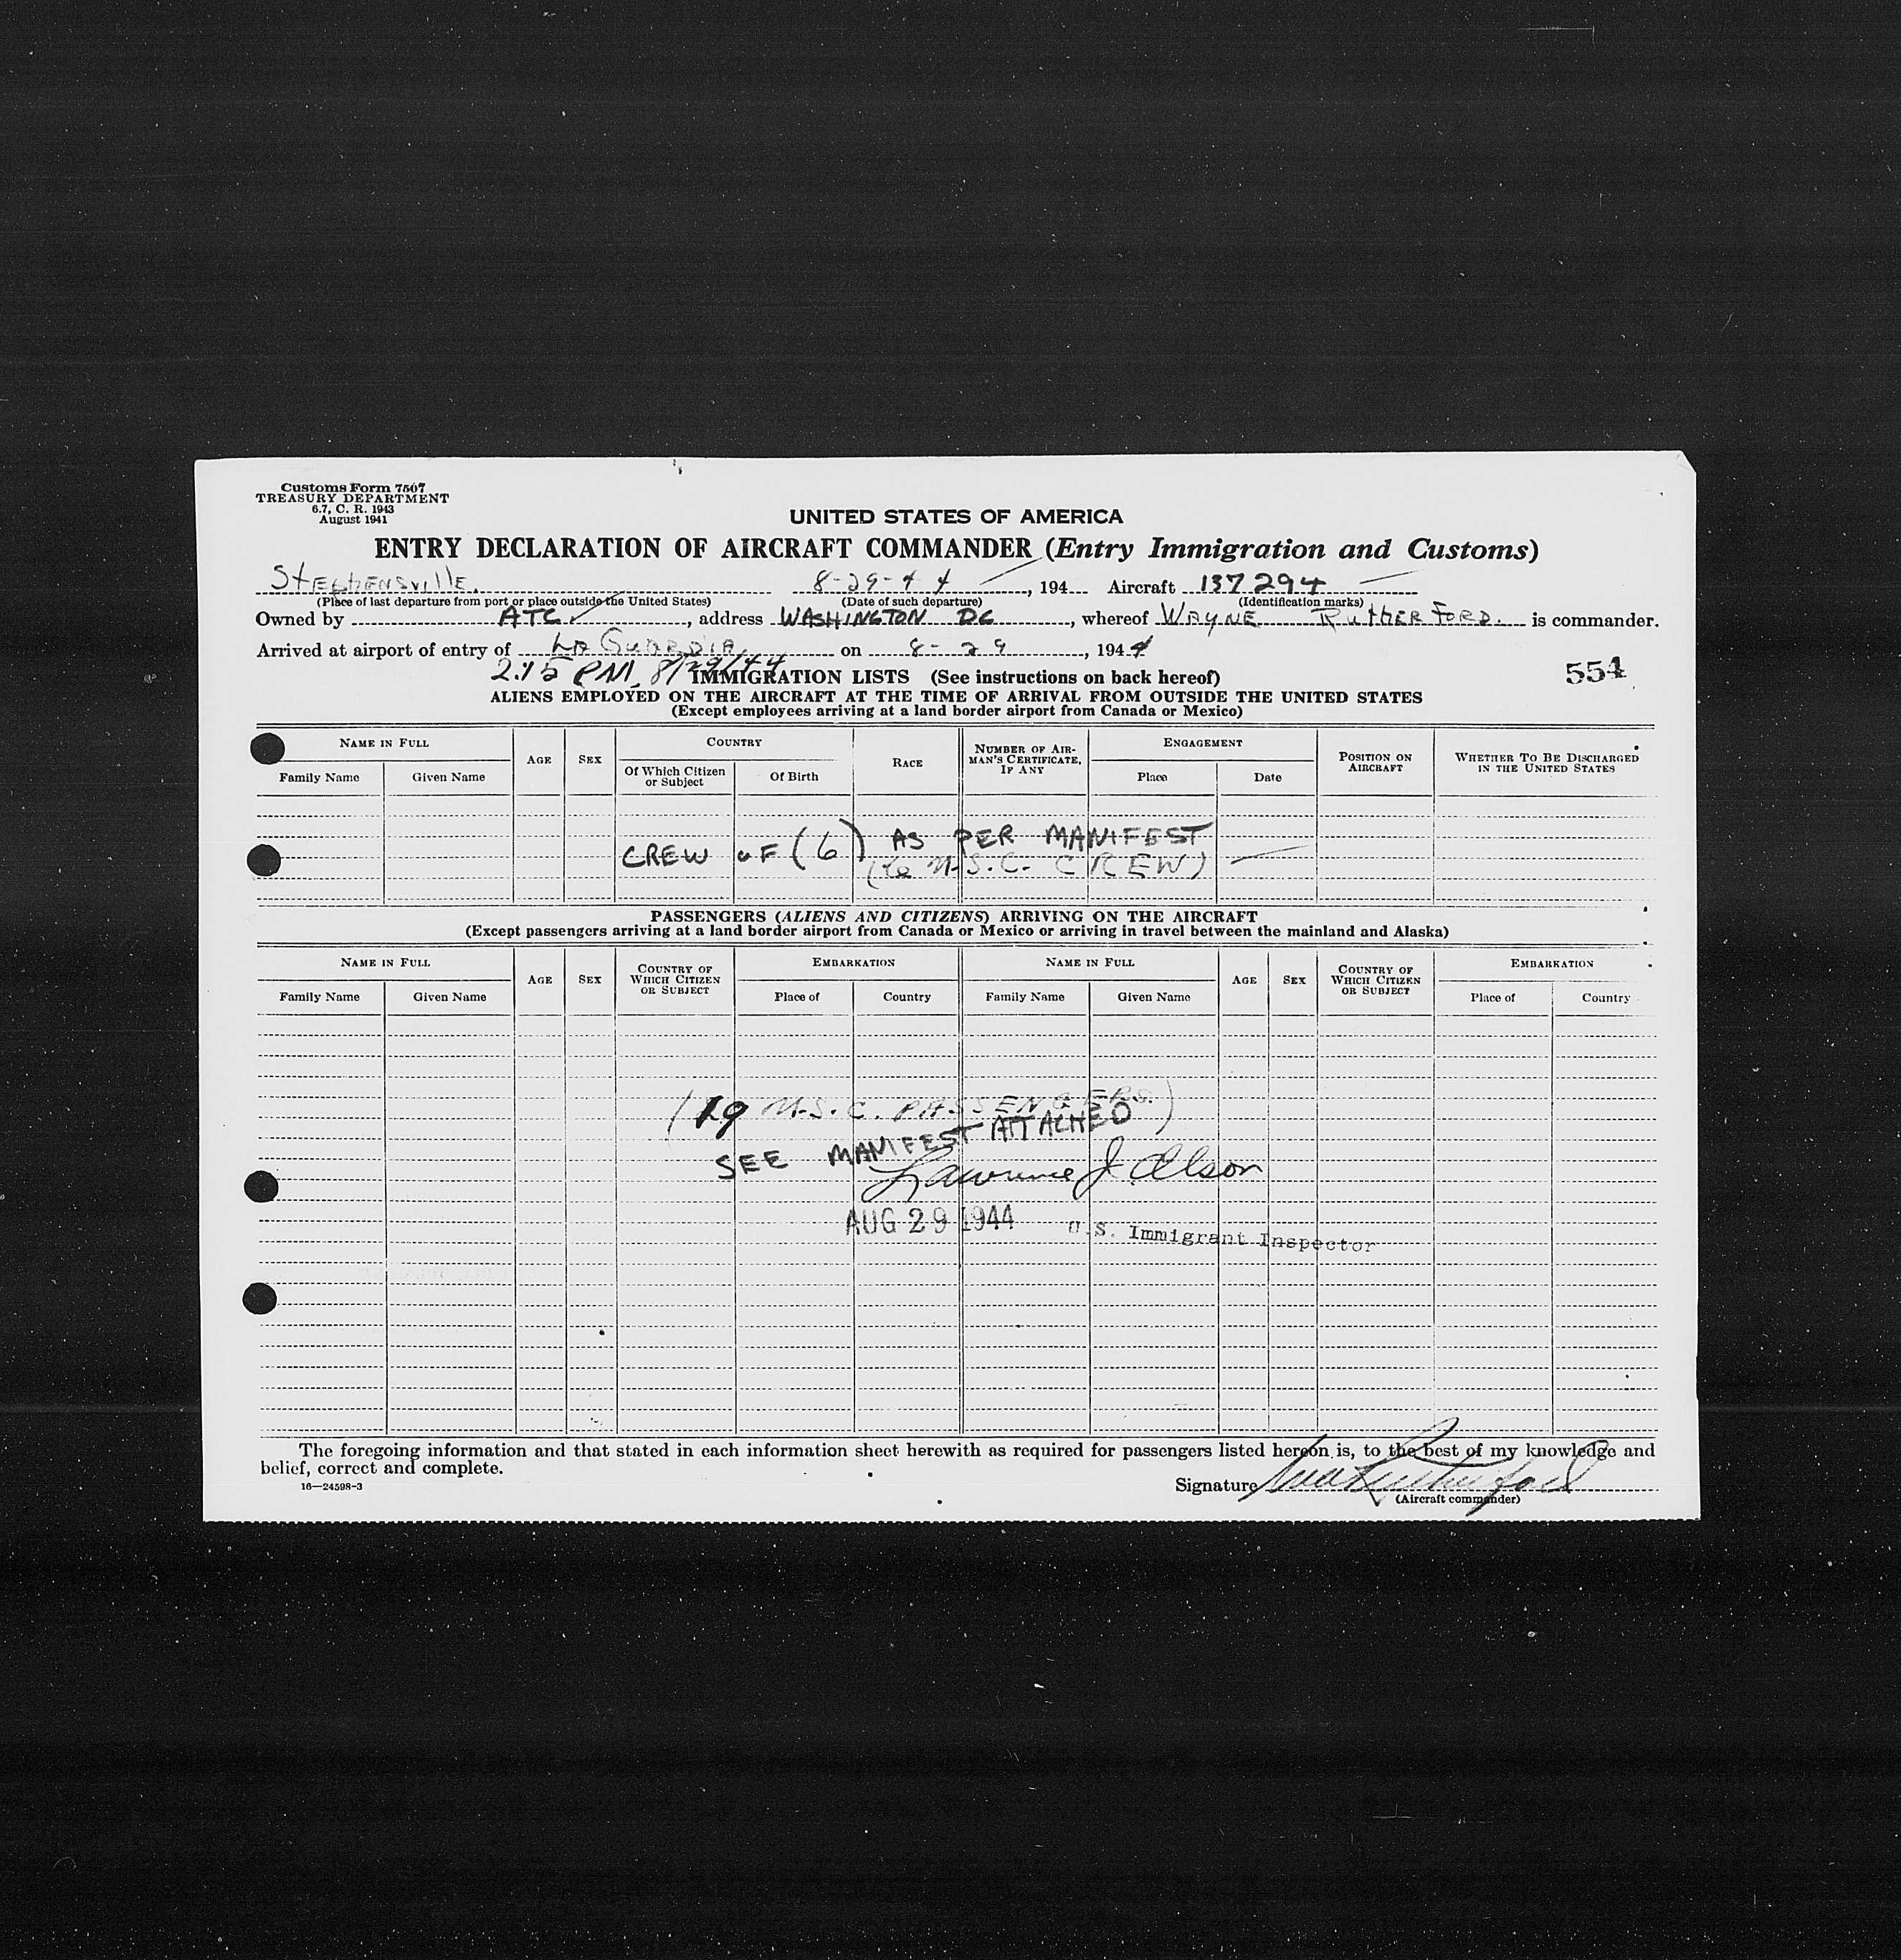 Customs Form 7507
TREASURY DEPARTMENT
6.7, C. R. 1943
August 1941
UNITED STATES OF AMERICA
ENTRY DECLARATION OF AIRCRAFT COMMANDER (Entry Immigration and Customs)
Stephensville. 8-29-44, 194 Aircraft 137294
(Place of last departure from port or place outside the United States) (Date of such departure) (Identification marks)
Owned by ATC, address WASHINGTON DC, whereof WAYNE RUTHERFORD. is commander.
Arrived at airport of entry of LA GUARDIA, on 8-29, 1944
2:15 PM, 8/29/44 IMMIGRATION LISTS (See instructions on back hereof) 554
ALIENS EMPLOYED ON THE AIRCRAFT AT THE TIME OF ARRIVAL FROM OUTSIDE THE UNITED STATES
(Except employees arriving at a land border airport from Canada or Mexico)
NAME IN FULL
Family Name Given Name
AGE
SEX
COUNTRY
Of Which Citizen or Subject
Of Birth
RACE
NUMBER OF AIRMAN'S CERTIFICATE, IF ANY
ENGAGEMENT
Place Date
POSITION ON AIRCRAFT
WHETHER TO BE DISCHARGED IN THE UNITED STATES
CREW OF (6) AS PER MANIFEST
(6 U.S.C. CREW)
PASSENGERS (ALIENS AND CITIZENS) ARRIVING ON THE AIRCRAFT
(Except passengers arriving at a land border airport from Canada or Mexico or arriving in travel between the mainland and Alaska)
NAME IN FULL
Family Name Given Name
AGE
SEX
COUNTRY OF WHICH CITIZEN OR SUBJECT
EMBARKATION
Place of Country
NAME IN FULL
Family Name Given Name
AGE
SEX
COUNTRY OF WHICH CITIZEN OR SUBJECT
EMBARKATION
Place of Country
(19 U.S.C. PASSENGERS.)
SEE MANIFEST ATTACHED
Lawrence J. Olson
AUG 29 1944 U.S. Immigrant Inspector
The foregoing information and that stated in each information sheet herewith as required for passengers listed hereon is, to the best of my knowledge and
belief, correct and complete.
16—24598-3
Signature Rutherford
(Aircraft commander)